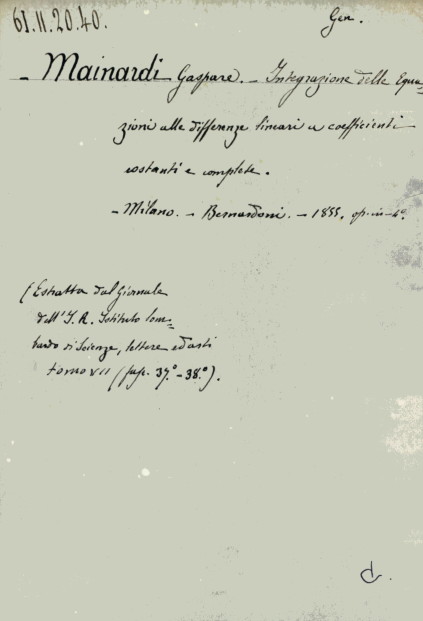 61.11.20.40.
Gen.
- Mainardi Gaspare. - Integrazione delle Equa-
zioni alle differenze lineari a coefficienti
costanti e complete.
- Milano. - Bernardoni. - 1855. op. in-4°.
(Estratto dal Giornale
dell' I. R. Istituto lom-
bardo di Scienze, lettere ed arti
tomo VII (fasc. 37.° - 38.°).